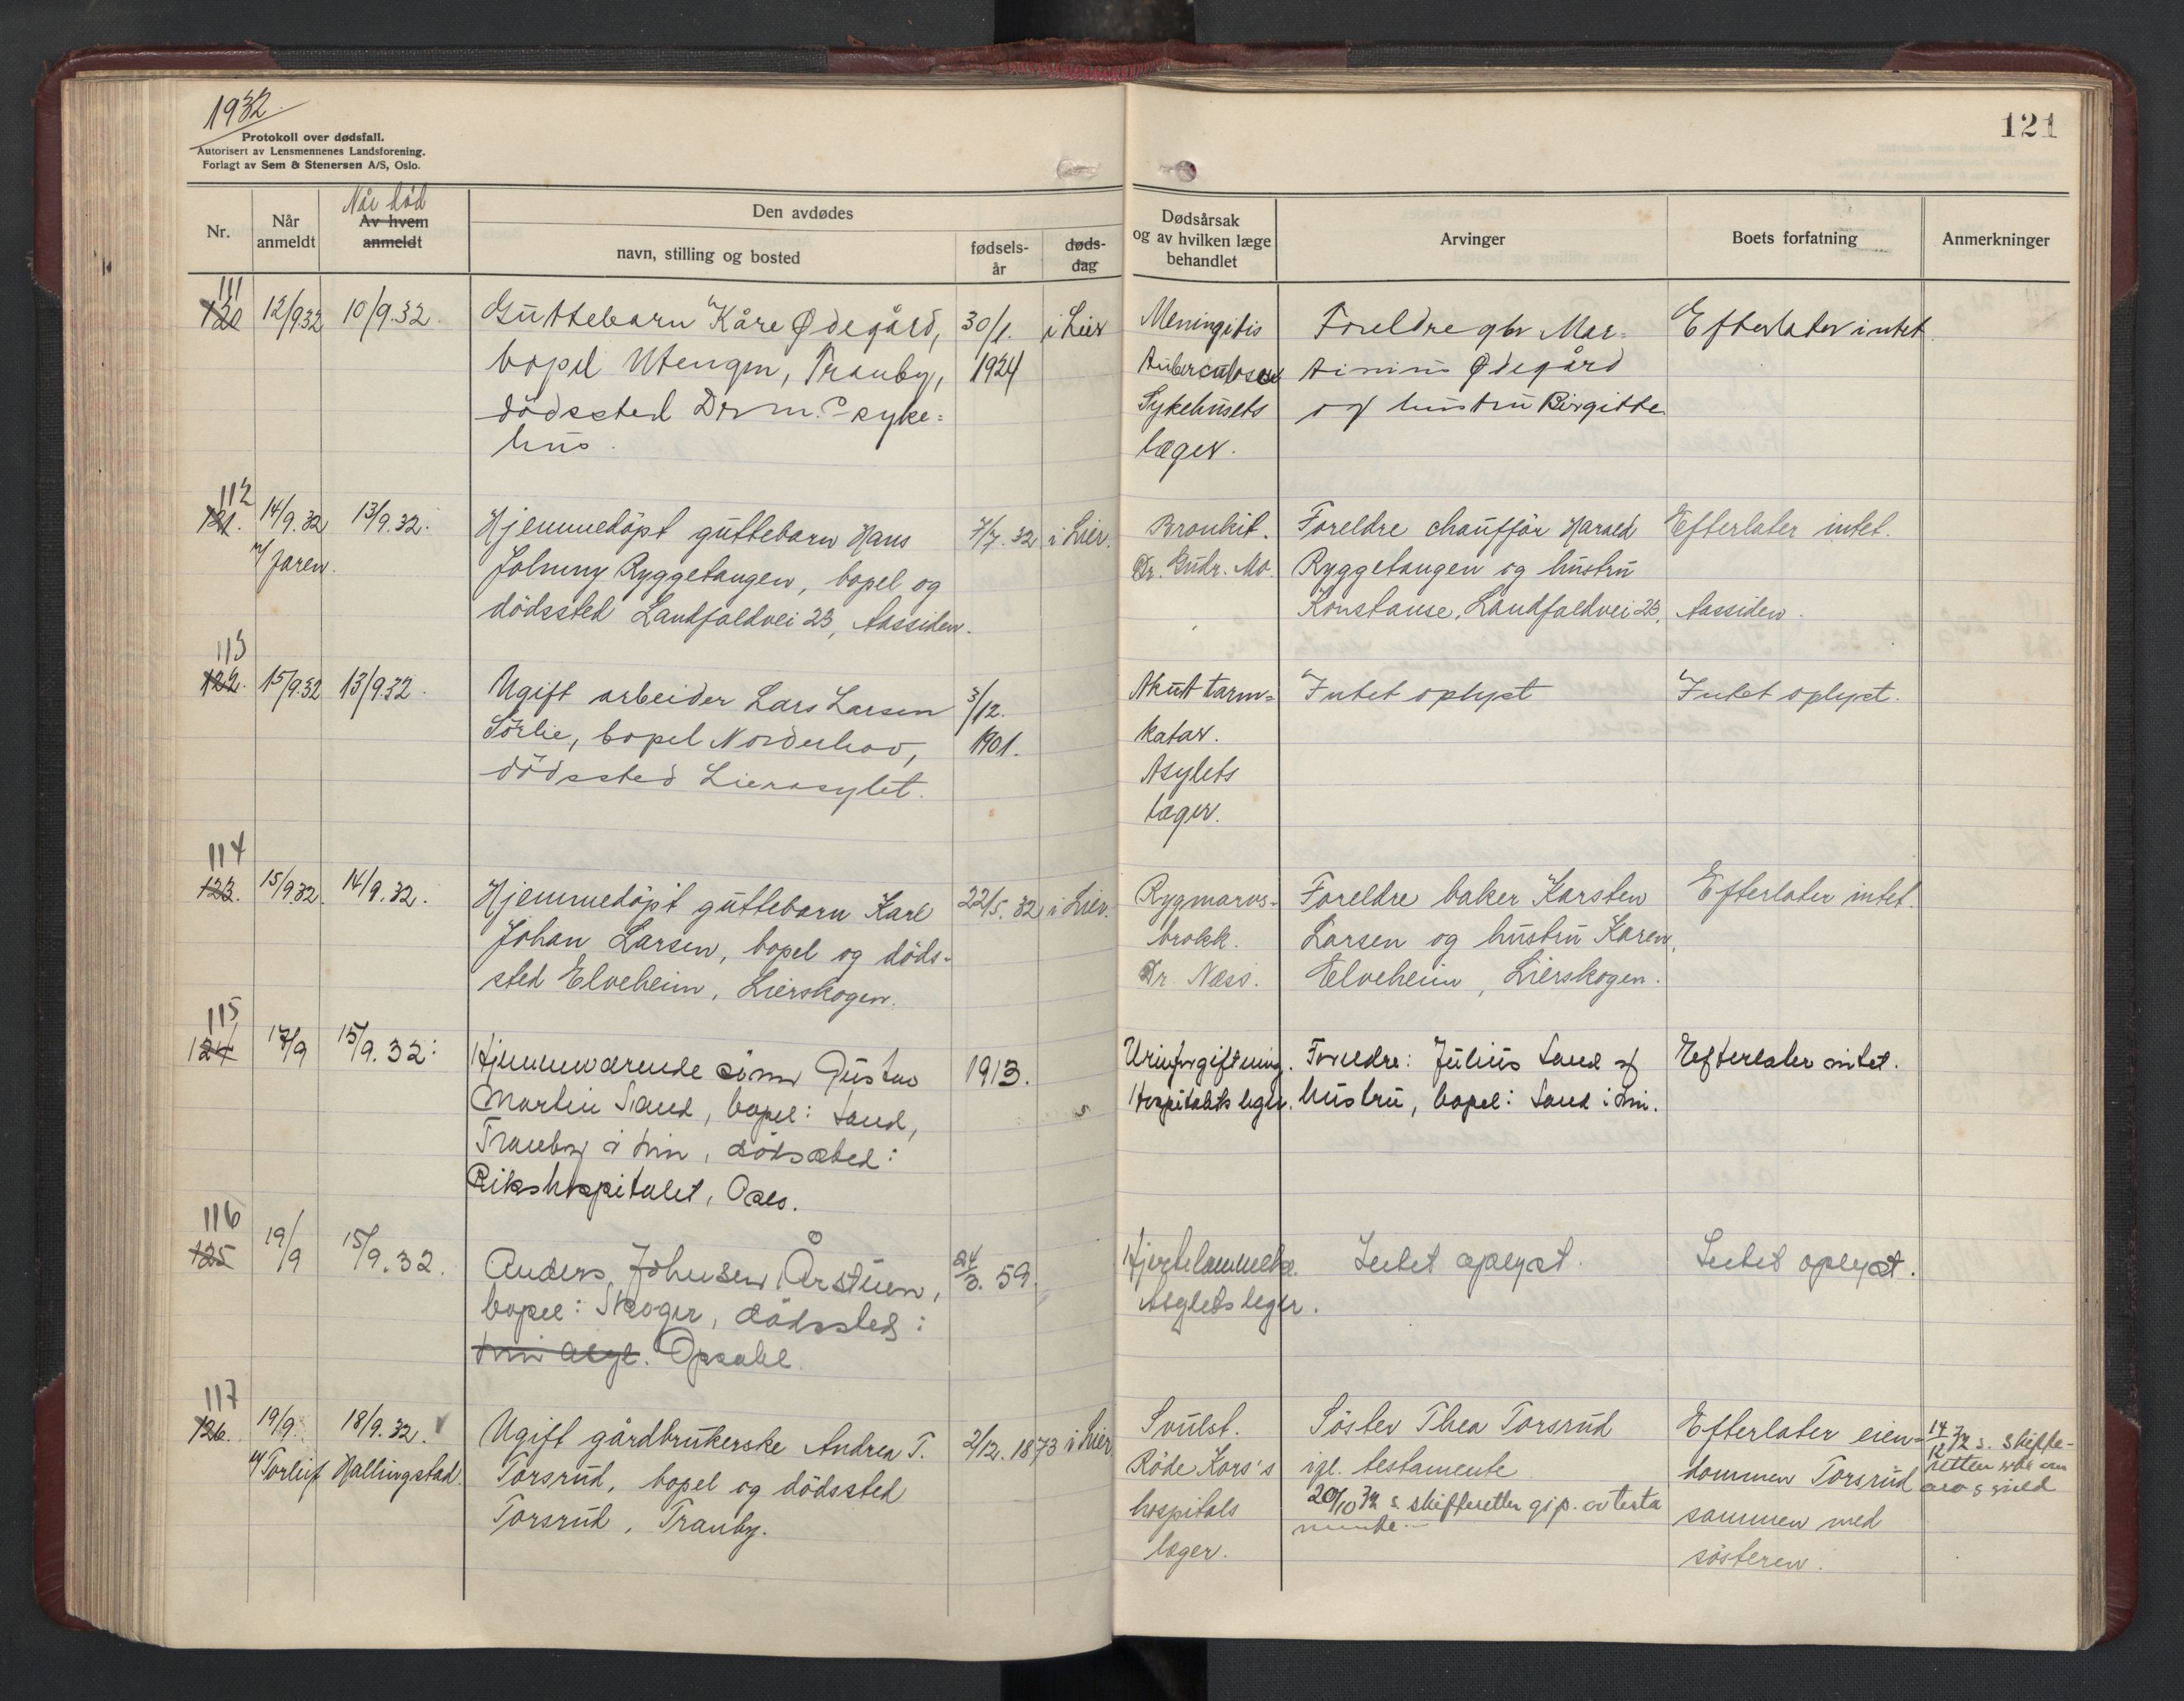 1932
Protokoll over dødsfall.
Autorisert av Lensmennenes Landsforening.
Forlagt av Sem & Stenersen A/S, Oslo.
121
Nr.
Når anmeldt
Når död
Av hvem anmeldt
Den avdødes
navn, stilling og bosted
fødsels-
år
døds-
dag
Dødsårsak
og av hvilken læge
behandlet
Arvinger
Boets forfatning
Anmerkninger
111
120 12/9.32 10/9.32. Guttebarn Kåre Ødegård, 30/1. i Lier
bopel Utengen, Tranby, 1924
dödssted Drm.s syke=
hus.
Meningitis
tuberculosa
Sykehusets
læger.
Foreldre gbr Mar=
tinius Ødegård
og hustru Birgitte
Efterlater intet.
112
121. 14/9.32 13/9.32. Hjemmedöpt guttebarn Hans 7/7.32 i Lier.
v/ Jaren. Johnny Ryggetangen, bopel og
dödssted Landfaldvei 23, Aassiden.
Bronkit.
Dr. Gudr. Mo.
Foreldre chaufför Harald
Ryggetangen og hustru
Konstanse, Landfaldvei 23, Aassiden.
Efterlater intet.
113
122. 15/9.32 13/9.32. Ugift arbeider Lars Larsen 3/12.
Sörlie, bopel Norderhov, 1901.
dödssted Lierasylet.
Akut tarm=
katar.
Asylets
læger.
Intet oplyst
Intet oplyst.
114
123. 15/9.32. 14/9.32. Hjemmedöpt guttebarn Karl 22/5.32 i Lier.
Johan Larsen, bopel og döds-
sted Elveheim, Lierskogen.
Rygmarvs-
brokk.
Dr. Næss.
Foreldre baker Karsten
Larsen og hustru Karen,
Elveheim, Lierskogen.
Efterlater intet.
115
124 17/9 15/9.32: Hjemmeværende sönn Gustav 1913.
Martin Sand, bopel: Sand,
Tranby i Lier, dödssted:
Rikshospitalet, Oslo.
Urinforgiftning.
Hospitalets leger.
Foreldre: Julius Sand og
hustru, bopel: Sand i Lier.
Efterlater intet.
116
125 19/9 15/9.32. Anders Johnsen Årstuen, 24/3. 59.
bopel: Skoger, dödssted:
Lier Asyl. Opsahl.
Hjertelammelse.
Asylets leger.
Intet oplyst.
Intet oplyst.
117
126. 19/9. 18/9.32. Ugift gårdbrukerske Andrea T. 2/12.1873 i Lier
v/ Torleif Hallingstad. Torsrud, bopel og dödssted
Torsrud, Tranby.
Svulst.
Röde Kors's
hospitals
læger.
Söster Thea Torsrud
igl. testamente
20/10 32 s. skifteretten gjp. av testa
mente
Efterlater eien=
dommen Torsrud
sammen med
sösteren.
14/12 32 s. skifte-
retten